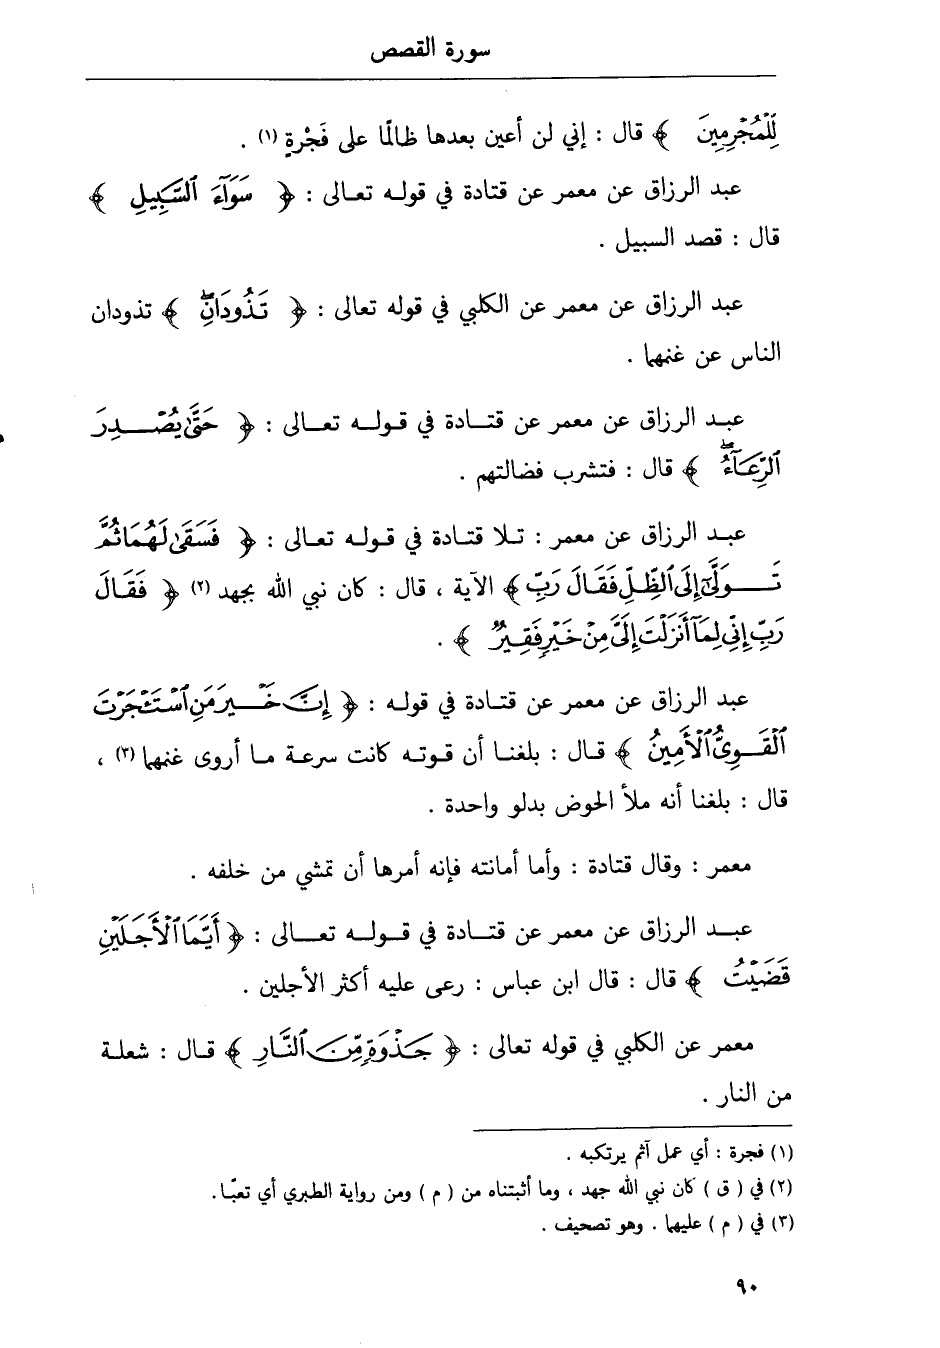 سورة القصص
لِّلْمُجْرِمِينَ ﴾ قال : إني لن أعين بعدها ظالمًا على فَجْرةٍ (١) .
عبد الرزاق عن معمر عن قتادة في قولـه تعـالى : ﴿ سَوَآءَ ٱلسَّبِيلِ ﴾
قال : قصد السبيل .
عبد الرزاق عن معمر عن الكلبي في قوله تعالى : ﴿ تَذُودَانِۖ ﴾ تذودان
الناس عن غنمهما .
عبـد الرزاق عن معمر عن قتـادة في قـولـه تعـالى : ﴿ حَتَّىٰ يُصْدِرَ
ٱلرِّعَآءُۖ ﴾ قال : فتشرب فضالتهم .
عبـد الرزاق عن معمر : تـلا قتـادة في قـولـه تعـالى : ﴿ فَسَقَىٰ لَهُمَا ثُمَّ
تَوَلَّىٰٓ إِلَى ٱلظِّلِّ فَقَالَ رَبِّ ﴾ الآية ، قال : كان نبي الله بجهد (٢) ﴿ فَقَالَ
رَبِّ إِنِّى لِمَآ أَنزَلْتَ إِلَىَّ مِنْ خَيْرٍ فَقِيرٌ ﴾ .
عبد الرزاق عن معمر عن قتـادة في قولـه : ﴿ إِنَّ خَيْرَ مَنِ ٱسْتَـْٔجَرْتَ
ٱلْقَوِىُّ ٱلْأَمِينُ ﴾ قـال : بلغنـا أن قـوتـه كانت سرعـة مـا أروى غنمهما (٣) ،
قال : بلغنا أنه ملأ الحوض بدلو واحدة .
معمر : وقال قتادة : وأما أمانته فإنه أمرها أن تمشي من خلفه .
عبـد الرزاق عن معمر عن قتـادة في قـولـه تعـالى : ﴿ أَيَّمَا ٱلْأَجَلَيْنِ
قَضَيْتُ ﴾ قال : قال ابن عباس : رعى عليه أكثر الأجلين .
معمر عن الكلبي في قوله تعالى : ﴿ جَذْوَةٍ مِّنَ ٱلنَّارِ ﴾ قـال : شعلـة
من النار .
(١) فجرة : أي عمل آثم يرتكبه .
(٢) في ( ق ) كان نبي الله جهد ، وما أثبتناه من ( م ) ومن رواية الطبري أي تعبًا.
(٣) في ( م ) عليهما . وهو تصحيف .
٩٠